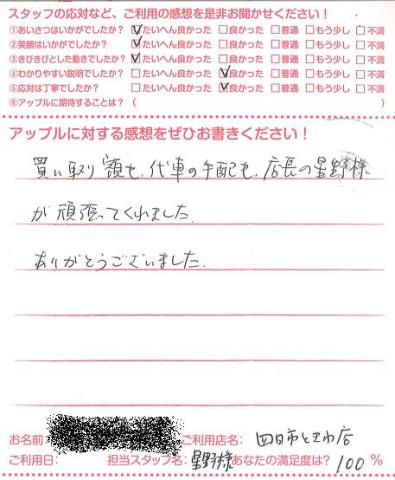 スタッフの応対など、ご利用の感想を是非お聞かせください!
①あいさつはいかがでしたか? ☑たいへん良かった □良かった □普通 □もう少し □不満
②笑顔はいかがでしたか? ☑たいへん良かった □良かった □普通 □もう少し □不満
③きびきびとした動きでしたか? ☑たいへん良かった □良かった □普通 □もう少し □不満
④わかりやすい説明でしたか? □たいへん良かった ☑良かった □普通 □もう少し □不満
⑤応対は丁寧でしたか? □たいへん良かった ☑良かった □普通 □もう少し □不満
⑥アップルに期待することは? (
アップルに対する感想をぜひお書きください!
買い取り額も、代車の手配も、店長の星野様
が頑張ってくれました。
ありがとうございました。
お名前 ご利用店名: 四日市ときわ店
ご利用日: 担当スタッフ名: 星野様 あなたの満足度は? 100 %